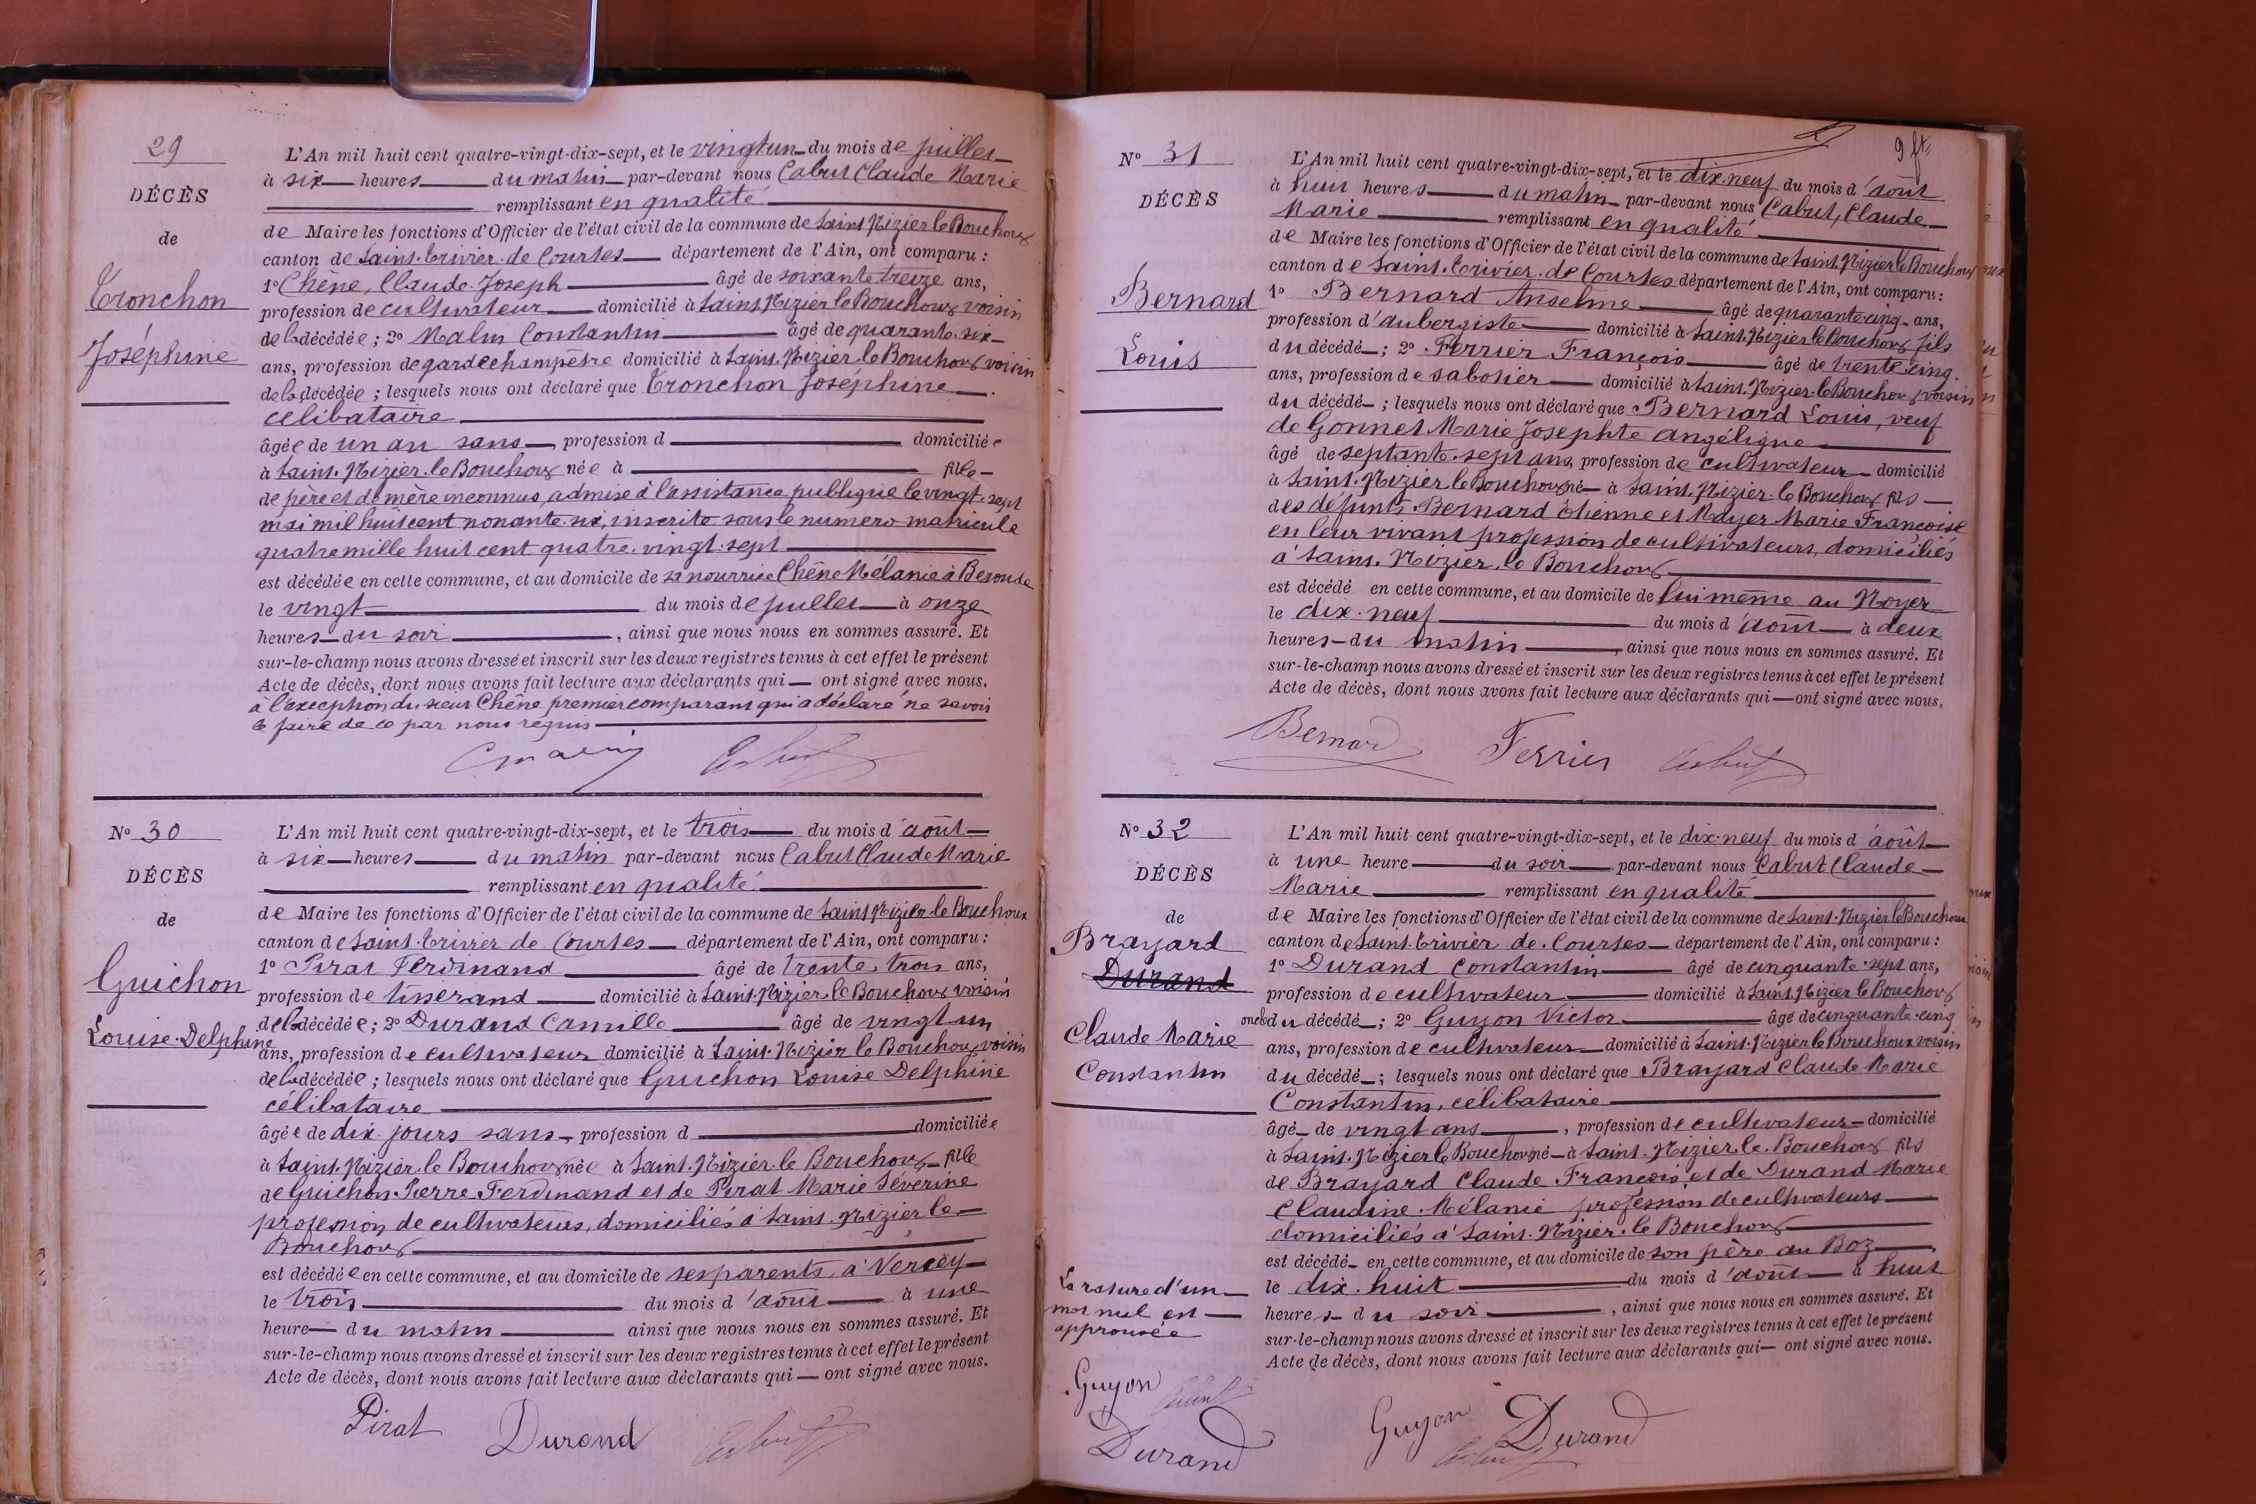 29
DÉCÈS
de
Tronchon
Joséphine
L'An mil huit cent quatre-vingt-dix-sept, et le vingtun du mois de juillet
à six heures du matin par-devant nous Cabut Claude Marie
remplissant en qualité
de Maire les fonctions d'Officier de l'état civil de la commune de Saint Nizier le Bouchoux
canton de Saint. Trivier. de Courtes département de l'Ain, ont comparu :
1º Chêne, Claude. Joseph âgé de soixante treize ans,
profession de cultivateur domicilié à Saint. Nizier le Bouchoux voisin
de la décédée ; 2º Malin Constantin âgé de quarante. six
ans, profession de garde champêtre domicilié à Saint. Nizier. le Bouchoux voisin
de la décédée ; lesquels nous ont déclaré que Tronchon Joséphine
célibataire
âgée de un an sans profession d domiciliée
à Saint. Nizier. le Bouchoux née à fille
de père et de mère inconnus, admise à l'assistance publique le vingt. sept
mai mil huit cent nonante. six, inscrite sous le numero matricule
quatre mille huit cent quatre. vingt. sept
est décédée en cette commune, et au domicile de sa nourrice Chêne Mélanie à
le vingt du mois de juillet à onze
heures du soir , ainsi que nous nous en sommes assuré. Et
sur-le-champ nous avons dressé et inscrit sur les deux registres tenus à cet effet le présent
Acte de décès, dont nous avons fait lecture aux déclarants qui ont signé avec nous.
à l'exception du sieur Chêne premier comparant qui a déclaré ne savoir
le faire de ce par nous requis
CMalin Cabut
Nº 30
DÉCÈS
de
Guichon
Louise. Delphine
L'An mil huit cent quatre-vingt-dix-sept, et le trois du mois d'août
à six heures du matin par-devant nous Cabut Claude Marie
remplissant en qualité
de Maire les fonctions d'Officier de l'état civil de la commune de Saint Nizier le Bouchoux
canton de Saint. Trivier de Courtes département de l'Ain, ont comparu :
1º Pirat Ferdinand âgé de trente. trois ans,
profession de tisserand domicilié à Saint. Nizier le Bouchoux voisin
de la décédée ; 2º Durand Camille âgé de vingt un
ans, profession de cultivateur domicilié à Saint. Nizier le Bouchoux voisin
de la décédée ; lesquels nous ont déclaré que Guichon Louise Delphine
célibataire
âgée de dix jours sans profession d domiciliée
à Saint. Nizier. le Bouchoux née à Saint. Nizier. le Bouchoux fille
de Guichon Pierre Ferdinand et de Pirat Marie Séverine
profession de cultivateurs, domiciliés à Saint. Nizier le
Bouchoux
est décédée en cette commune, et au domicile de ses parents, à Vercey
le trois du mois d'août à une
heure du matin ainsi que nous nous en sommes assuré. Et
sur-le-champ nous avons dressé et inscrit sur les deux registres tenus à cet effet le présent
Acte de décès, dont nous avons fait lecture aux déclarants qui ont signé avec nous.
Pirat Durand Cabut
9 ft.
Nº 31
DÉCÈS
Bernard
Louis
L'An mil huit cent quatre-vingt-dix-sept, et le dix. neuf du mois d'août
à huit heures du matin par-devant nous Cabut, Claude
Marie remplissant en qualité
de Maire les fonctions d'Officier de l'état civil de la commune de Saint. Nizier le Bouchoux
canton de Saint. Trivier. de Courtes département de l'Ain, ont comparu :
1º Bernard Anselme âgé de quarante. cinq ans,
profession d'aubergiste domicilié à Saint. Nizier le Bouchoux fils
du décédé ; 2º Ferrier François âgé de trente. cinq.
ans, profession de sabotier domicilié à Saint. Nizier. le Bouchoux voisin
du décédé ; lesquels nous ont déclaré que Bernard Louis, veuf
de Gonnet Marie Josephte angélique
âgé de septante. sept ans, profession de cultivateur domicilié
à Saint. Nizier le Bouchoux né à Saint. Nizier. le Bouchoux fils
des défunts Bernard Etienne et Mayer Marie Françoise
en leur vivant profession de cultivateurs, domiciliés
à Saint. Nizier. le Bouchoux
est décédé en cette commune, et au domicile de lui même au Noyer
le dix. neuf du mois d'août à deux
heures du matin , ainsi que nous nous en sommes assuré. Et
sur-le-champ nous avons dressé et inscrit sur les deux registres tenus à cet effet le présent
Acte de décès, dont nous avons fait lecture aux déclarants qui ont signé avec nous.
Bernard Ferrier Cabut
Nº 32
DÉCÈS
de
Brayard
Durand
Claude Marie
Constantin
L'An mil huit cent quatre-vingt-dix-sept, et le dix. neuf du mois d'août
à une heure du soir par-devant nous Cabut Claude
Marie remplissant en qualité
de Maire les fonctions d'Officier de l'état civil de la commune de Saint. Nizier le Bouchoux
canton de Saint. Trivier de. Courtes département de l'Ain, ont comparu :
1º Durand Constantin âgé de cinquante. sept ans,
profession de cultivateur domicilié à Saint. Nizier le Bouchoux
oncle du décédé ; 2º Guyon Victor âgé de cinquante. cinq
ans, profession de cultivateur domicilié à Saint. Nizier le Bouchoux voisin
du décédé ; lesquels nous ont déclaré que Brayard Claude Marie
Constantin, célibataire
âgé de vingt ans , profession de cultivateur domicilié
à Saint. Nizier le Bouchoux né à Saint. Nizier le. Bouchoux fils
de Brayard Claude François et de Durand Marie
Claudine. Mélanie profession de cultivateurs
domiciliés à Saint. Nizier. le Bouchoux
est décédé en cette commune, et au domicile de son père au Boz
le dix. huit du mois d'août à huit
heures du soir , ainsi que nous nous en sommes assuré. Et
sur-le-champ nous avons dressé et inscrit sur les deux registres tenus à cet effet le présent
Acte de décès, dont nous avons fait lecture aux déclarants qui ont signé avec nous.
La rature d'un
mot nul est
approuvée
Guyon
Cabut
Durand
Guyon Durand
Cabut